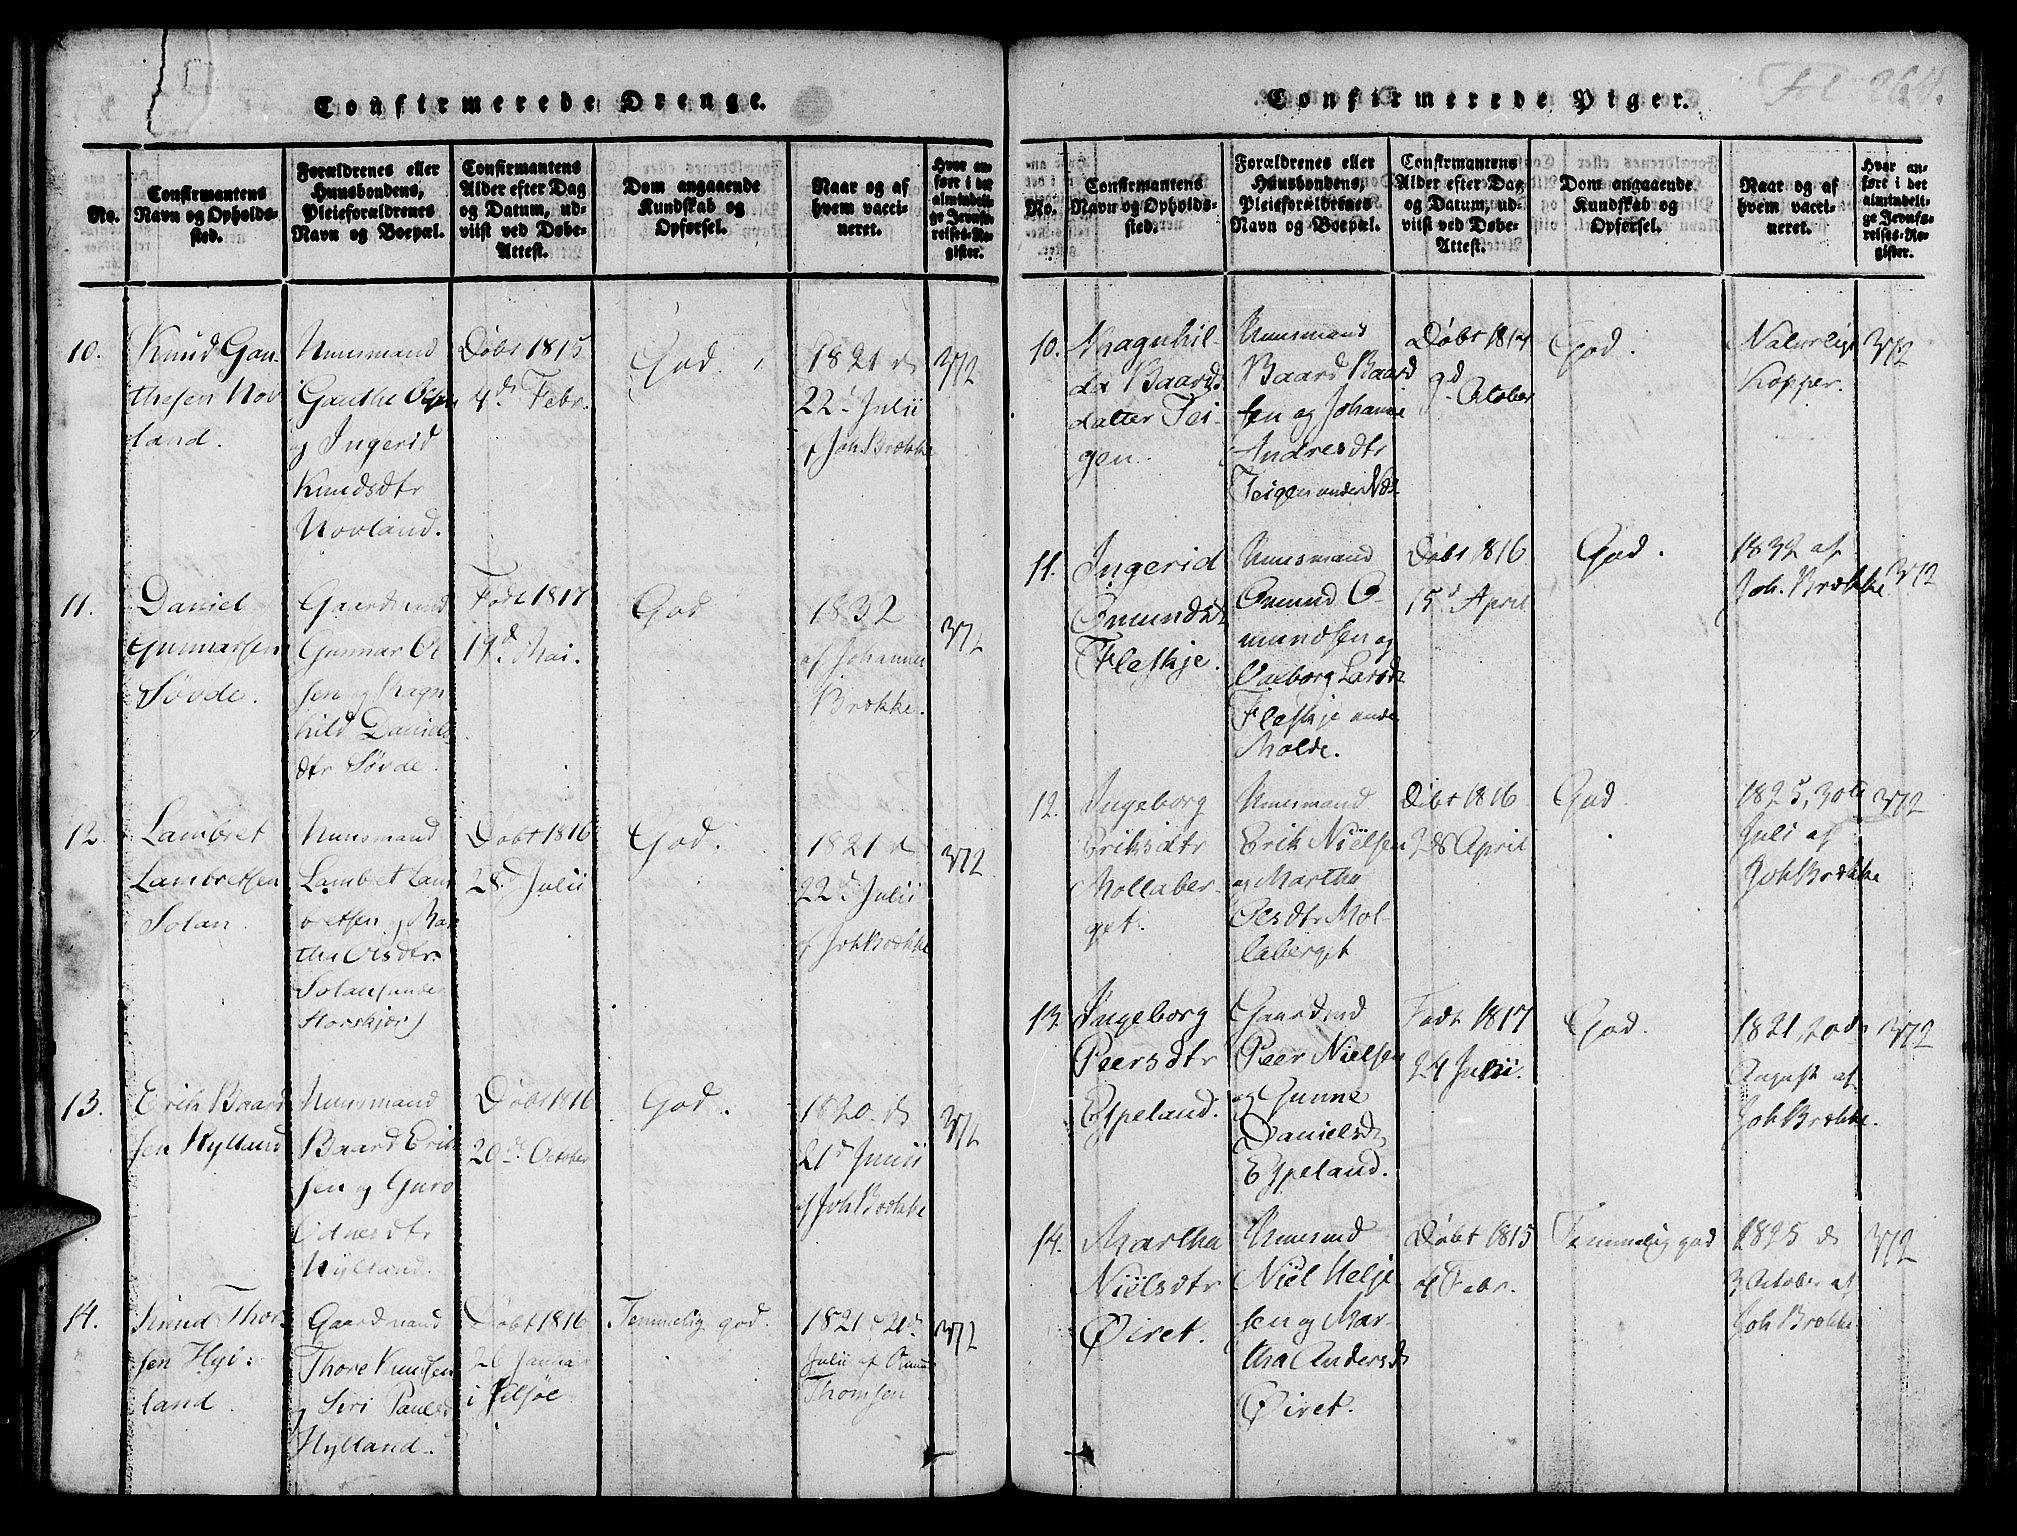 Confirmerede Drenge.
No.
Confirmantens
Navn og Opholds-
sted.
Forældrenes eller
Huusbondens,
Pleieforældrenes
Navn og Boepæl.
Confirmantens
Alder efter Dag
og Datum, ud-
viist ved Døbe-
Attest.
Dom angaaende
Kundskab og
Opførsel.
Naar og af
hvem vacci-
neret.
Hvor an-
ført i det
almindeli-
ge Jevnfø-
relses-Re-
gister.
10.
Knud Gau
thesen Hov
land.
Huusmand
Gauthe
og Ingerid
Knudsdtr
Hovland.
Døbt 1815
4d Febr.
God.
1821 d
22d Julii
af Joh. Brække
372
11.
Daniel
Gunnarsen
Søvde.
Gaardmand
Gunnar Ol
sen og Ragn
hild Daniels
dtr Søvde.
Født 1817
19d Mai.
God
1832
af Johannes
Brække.
372
12.
Lambret
Lambretsen
Solan.
Huusmand
Lambret Lam
bretsen og Mar
tha Olsdtr
Solan (under
Horskjor)
Døbt 1816
28d Julii
God.
1821 d
22d Julii
af Joh Brække
372
13.
Erik Baard
sen Hylland
Huusmand
Baard Erik
sen og Guro
Odnesdtr
Hylland.
Døbt 1816
20d October
God.
1820 d
21d Junii
af Joh Brække
372
14.
Knud Thor
sen Hyl:
land.
Gaardmand
Thore Knudsen
og Siri Pauls
Hylland.
Døbt 1816
26 Janua
i
Temmelig god.
1821 d 20d
Julii af
Thomsen
372
Confirmerede Piger.
Fol
No.
Confirmantens
Navn og Opholds-
sted.
Forældrenes eller
Huusbondens,
Pleieforældrenes
Navn og Boepæl.
Confirmantens
Alder efter Dag
og Datum, ud-
viist ved Døbe-
Attest.
Dom angaaende
Kundskab og
Opførsel.
Naar og af
hvem vacci-
neret.
Hvor an-
ført i det
almindeli-
ge Jevnfø-
relses-Re-
gister.
10.
Magnhil-
da Baards
datter Tei-
gen.
Huusmand
Baard Baard
sen og Johanne
Andresdtr
Teigen under
Døbt 1814
9d October
God.
Naturlige
Kopper.
372
11.
Ingerid
Omundsd
Fleskje.
Huusmand
Omund O-
mundsen og
Valborg Larsd
Fleskje under
Molde.
Døbt 1816
15d April
God.
1832 af
Joh. Brække
372
12.
Ingeborg
Eriksdtr
Mollaber-
get.
Huusmand
Erik Nielsen
og Martha
Olsdtr Mol-
laberget
Døbt 1816
28 April
God.
1825, 30te
Juli af
Joh Brække
372
13.
Ingeborg
Peersdtr
Espeland.
Gaardmd
Peer Nielsen
og Gunne
Danielsd
Espeland.
Født 1817
24 Julii.
God.
1821, 20d
August af
Joh Brække.
372
14.
Martha
Nielsdtr
Øiret.
Huusmd
Niel Helje
sen og Mar-
tha Andersd
Øiret.
Døbt 1815
4 Febr.
Temmelig god
1825 d
3 October af
Joh Brække
372